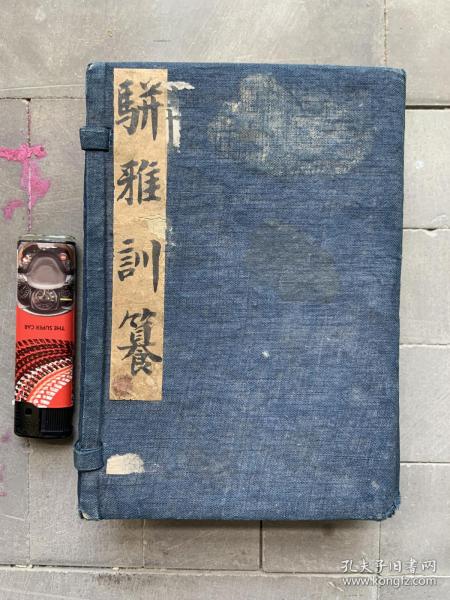 駢雅訓籑
THE SUPER CAR
孔夫子旧书网
www.kongfz.com